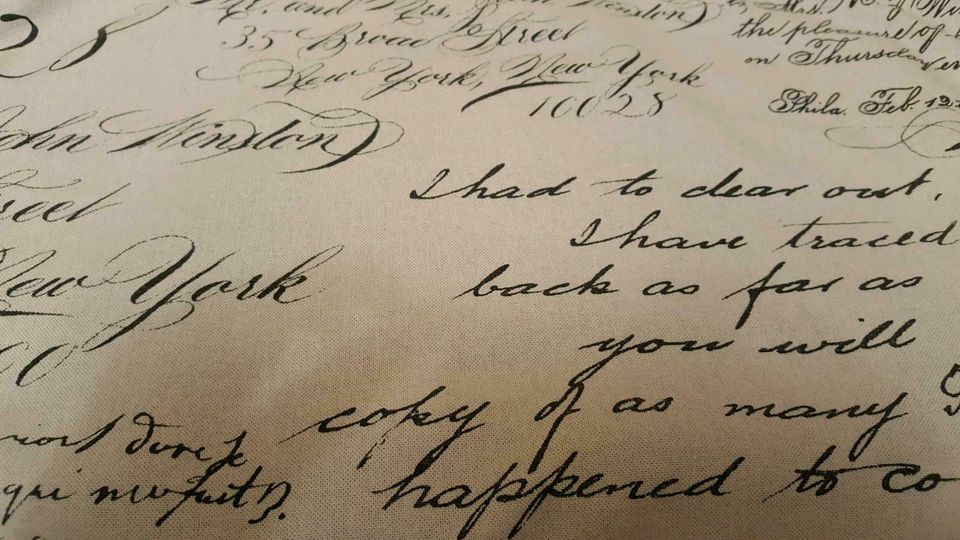 Mr. and Mrs. John Winston
35 Broad Street
New York, New York
10028
Mrs.
the pleasure of
on Thursday
Phila. Feb.
John Winston
reet
New York
I had to clear out,
I have traced
back as far as
you will
copy of as many
happened to co
qui